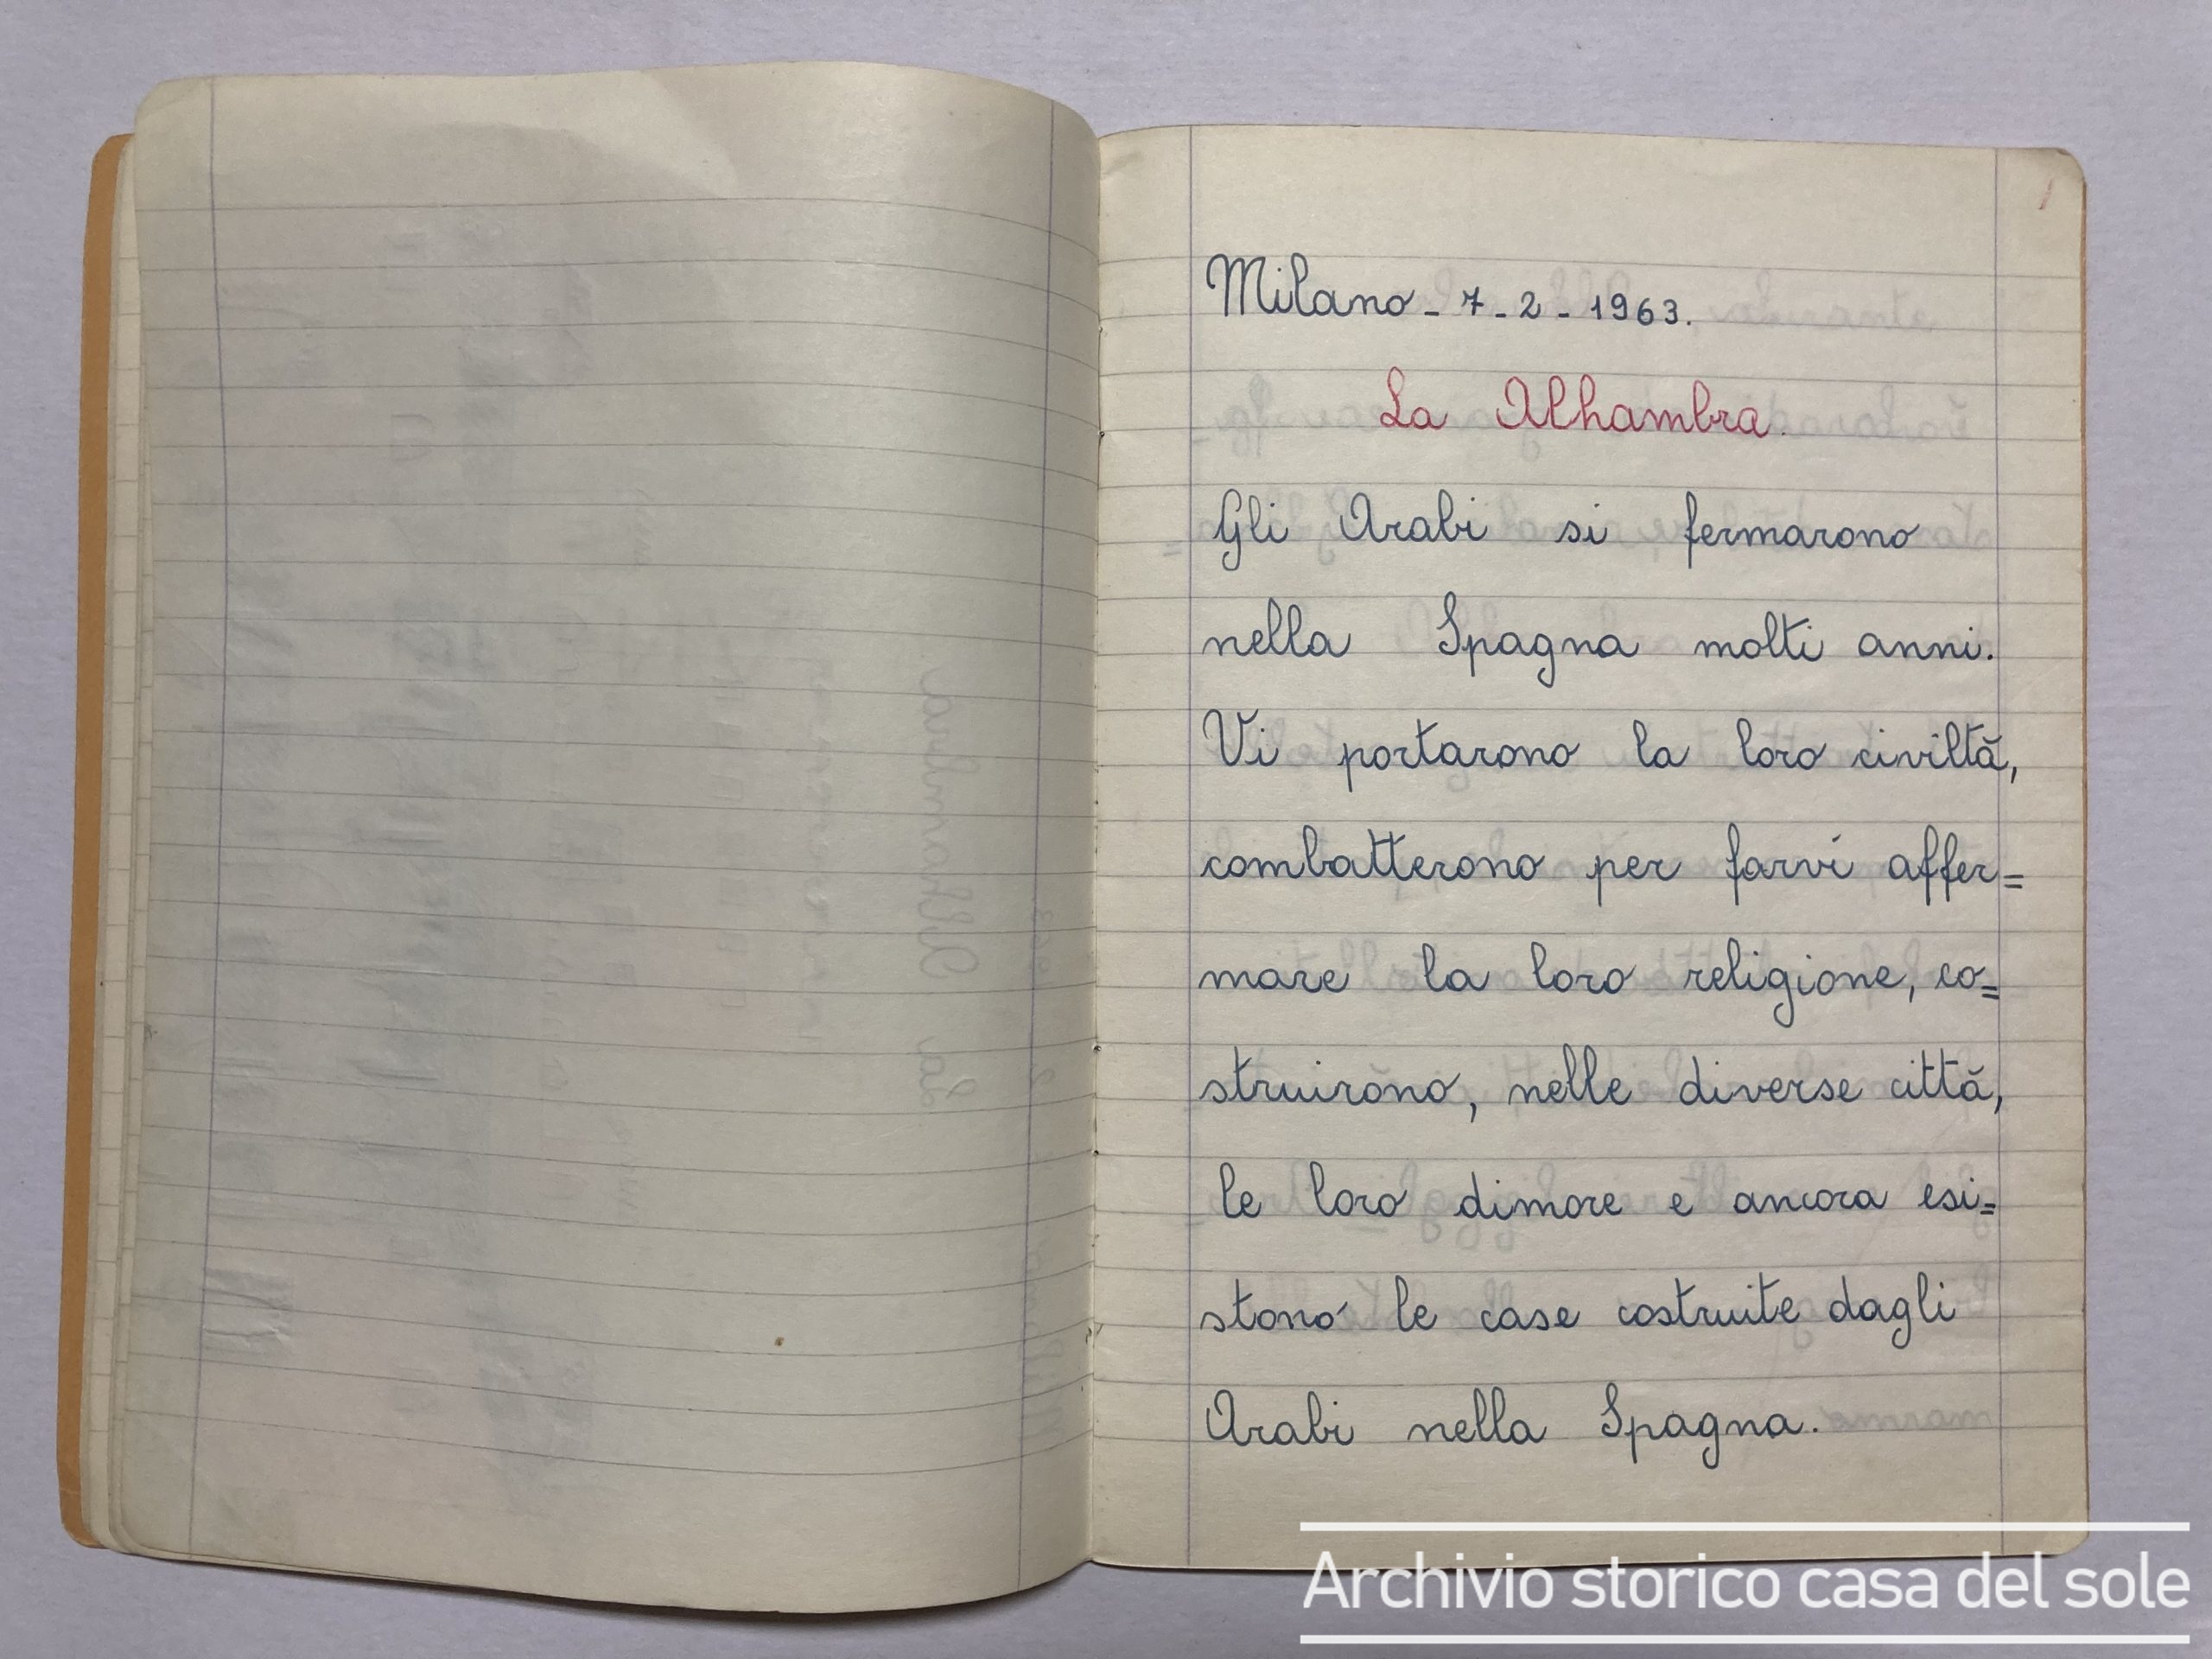 Milano - 7 - 2 - 1963.
La Alhambra.
Gli Arabi si fermarono
nella Spagna molti anni.
Vi portarono la loro civiltà,
combatterono per farvi affer=
mare la loro religione, co=
struirono, nelle diverse città,
le loro dimore e ancora esi=
stono le case costruite dagli
Arabi nella Spagna.
Archivio storico casa del sole